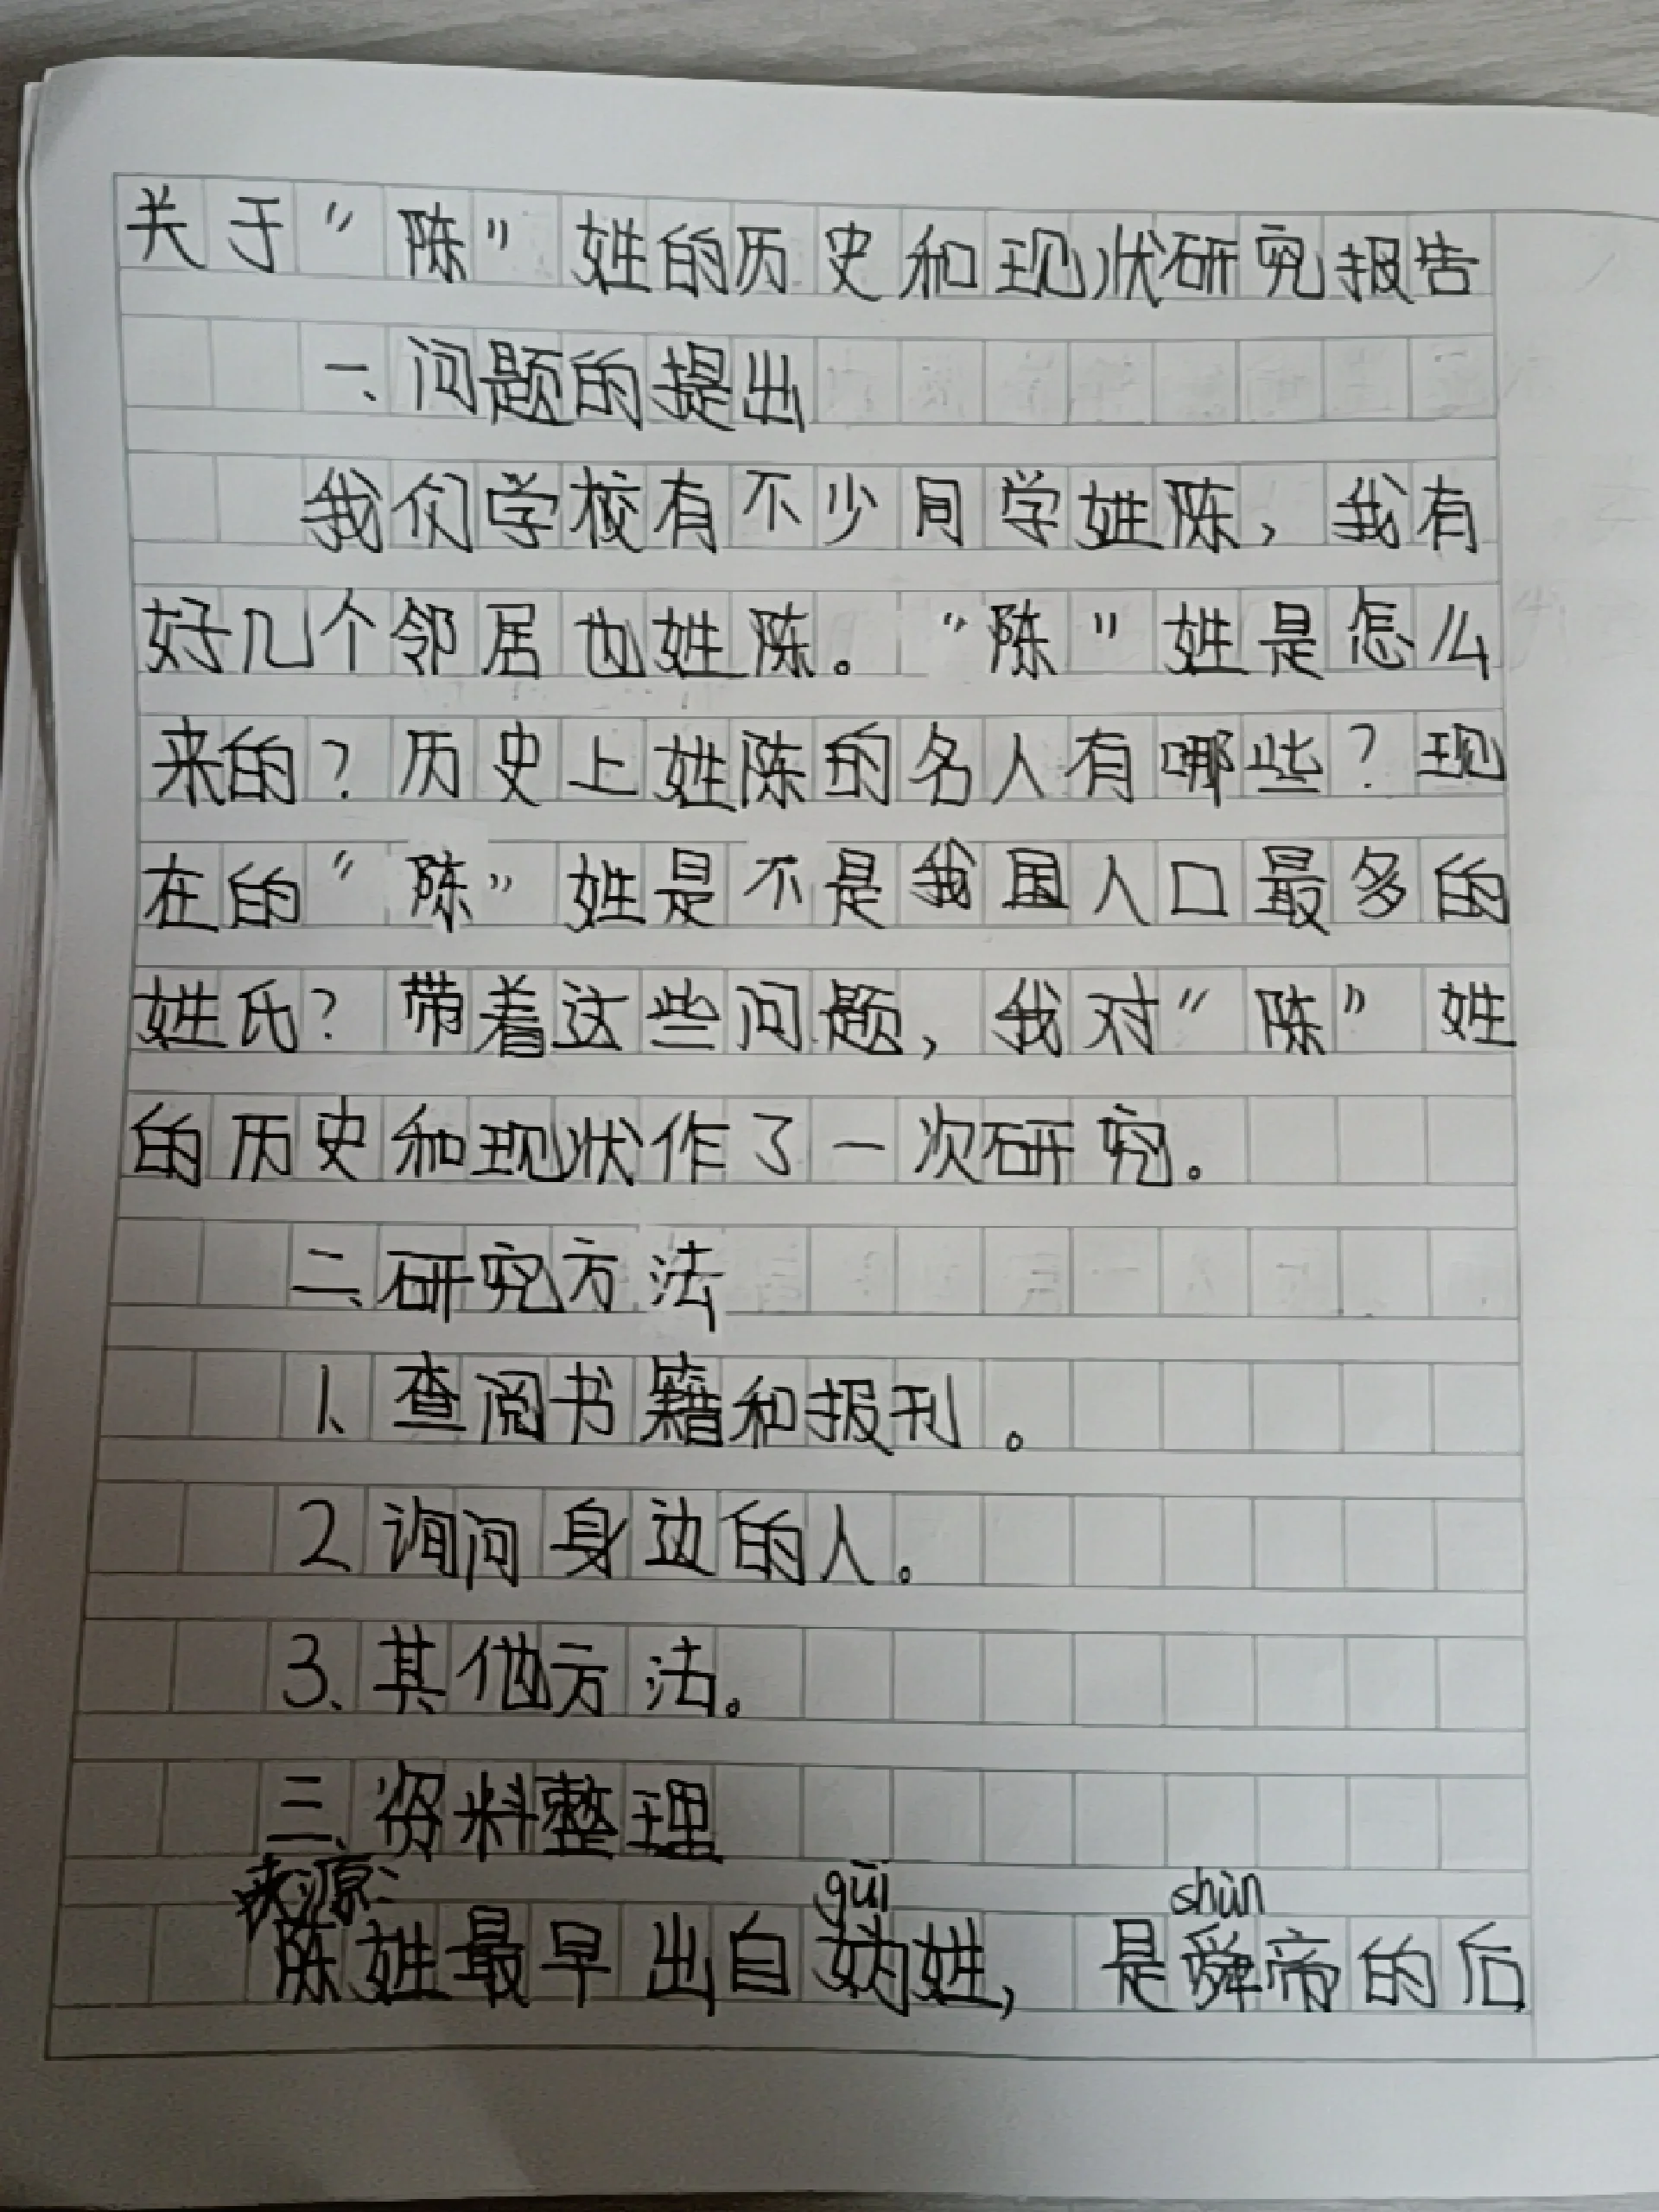 关于“陈”姓的历史和现状研究报告
一、问题的提出
我们学校有不少同学姓陈，我有
好几个邻居也姓陈。“陈”姓是怎么
来的？历史上姓陈的名人有哪些？现
在的“陈”姓是不是我国人口最多的
姓氏？带着这些问题，我对“陈”姓
的历史和现状作了一次研究。
二、研究方法
1、查阅书籍和报刊。
2、询问身边的人。
3、其他方法。
三、资料整理
来源：
guī shùn
陈姓最早出自妫姓，是舜帝的后